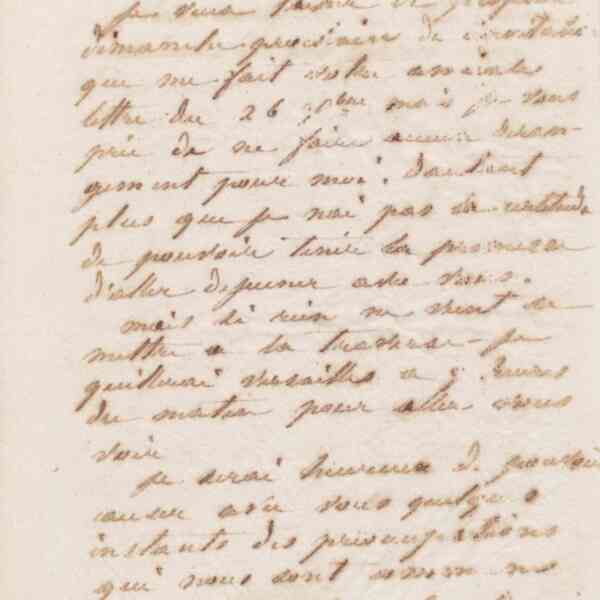 je vous
dimanche prochain de
que me fait votre aimable
lettre du 26 mais je vous
prie de ne faire aucun déran-
gement pour moi. d'autant
plus que je n'ai pas la certitude
de pouvoir tenir la promesse
d'aller dejeuner avec vous.
mais si rien ne vient se
mettre a la traverse je
quitterai versailles a heures
du matin pour aller vous
voir
je serai heureux de pouvoir
causer avec vous quelques
instants des préoccupations
qui nous sont communes